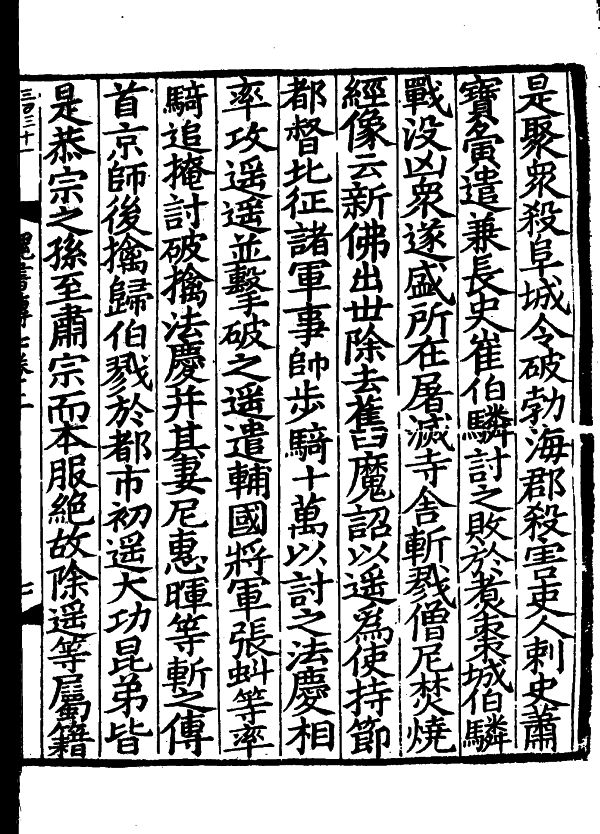 是聚衆殺阜城令破勃海郡殺害吏人刺史蕭
寶夤遣兼長史崔伯驎討之敗於煮棗城伯驎
戰没凶衆遂盛所在屠滅寺舍斬戮僧尼焚燒
經像云新佛出世除去舊魔詔以遥爲使持節
都督北征諸軍事帥步騎十萬以討之法慶相
率攻遥遥並擊破之遥遣輔國將軍張虯等率
騎追掩討破擒法慶并其妻尼惠暉等斬之傳
首京師後擒歸伯戮於都市初遥大功昆弟皆
是恭宗之孫至肅宗而本服絶故除遥等屬籍
七